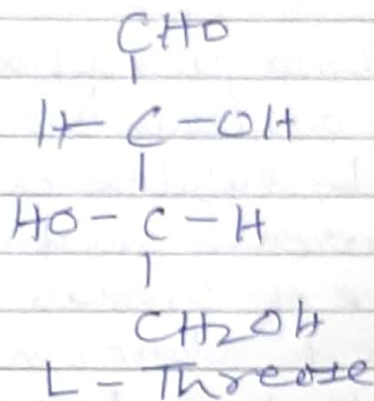 CHO
|
H - C - OH
|
HO - C - H
|
CH2OH
L - Threose